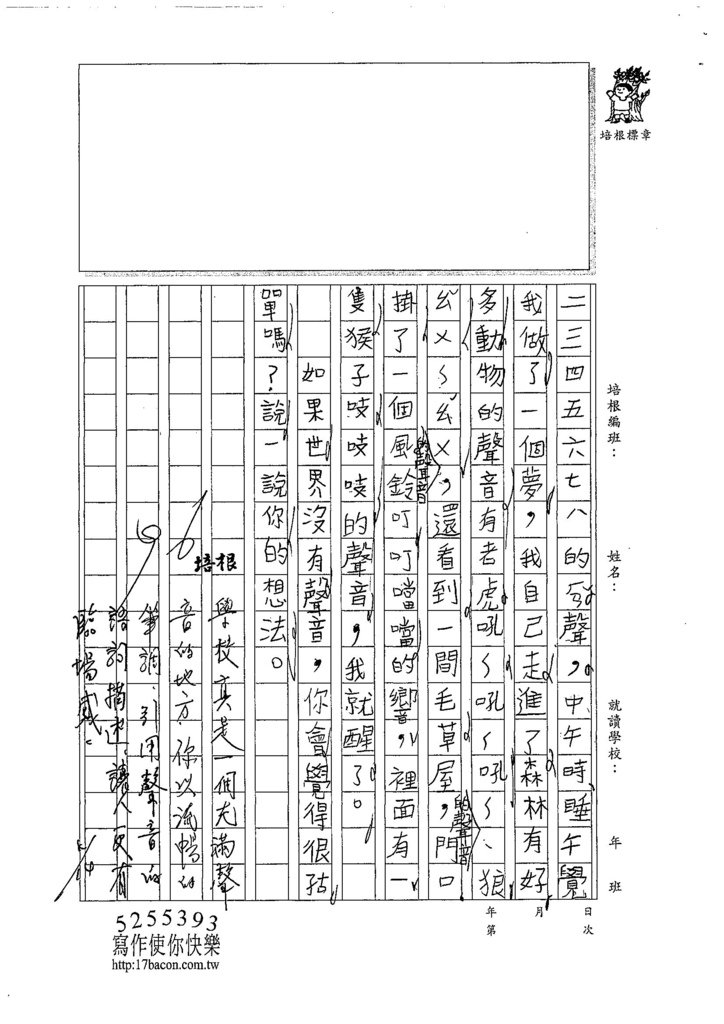 培根標章
培根編班：
姓名：
就讀學校：
年
班
二三四五六七八的兮聲，中午時睡午覺
我做了一個夢，我自己走進了森林有好
多動物的聲音有老虎吼～吼～吼～、狼
ㄠˇㄨ～ㄠˇㄨ的聲音，還看到一間毛草屋，門口
掛了一個風鈴叮叮噹噹的響，裡面有一
隻猴子吱吱吱的聲音，我就醒了。
的聲音
如果世界沒有聲音，你會覺得很孤
單嗎？說一說你的想法。
培根
學校真是一個充滿聲
音的地方，你以流暢的
筆調，引用聲音的
語詞描述，讓人更有
臨場感。
5/14
年
月
日
第
次
5255393
寫作使你快樂
http:17bacon.com.tw